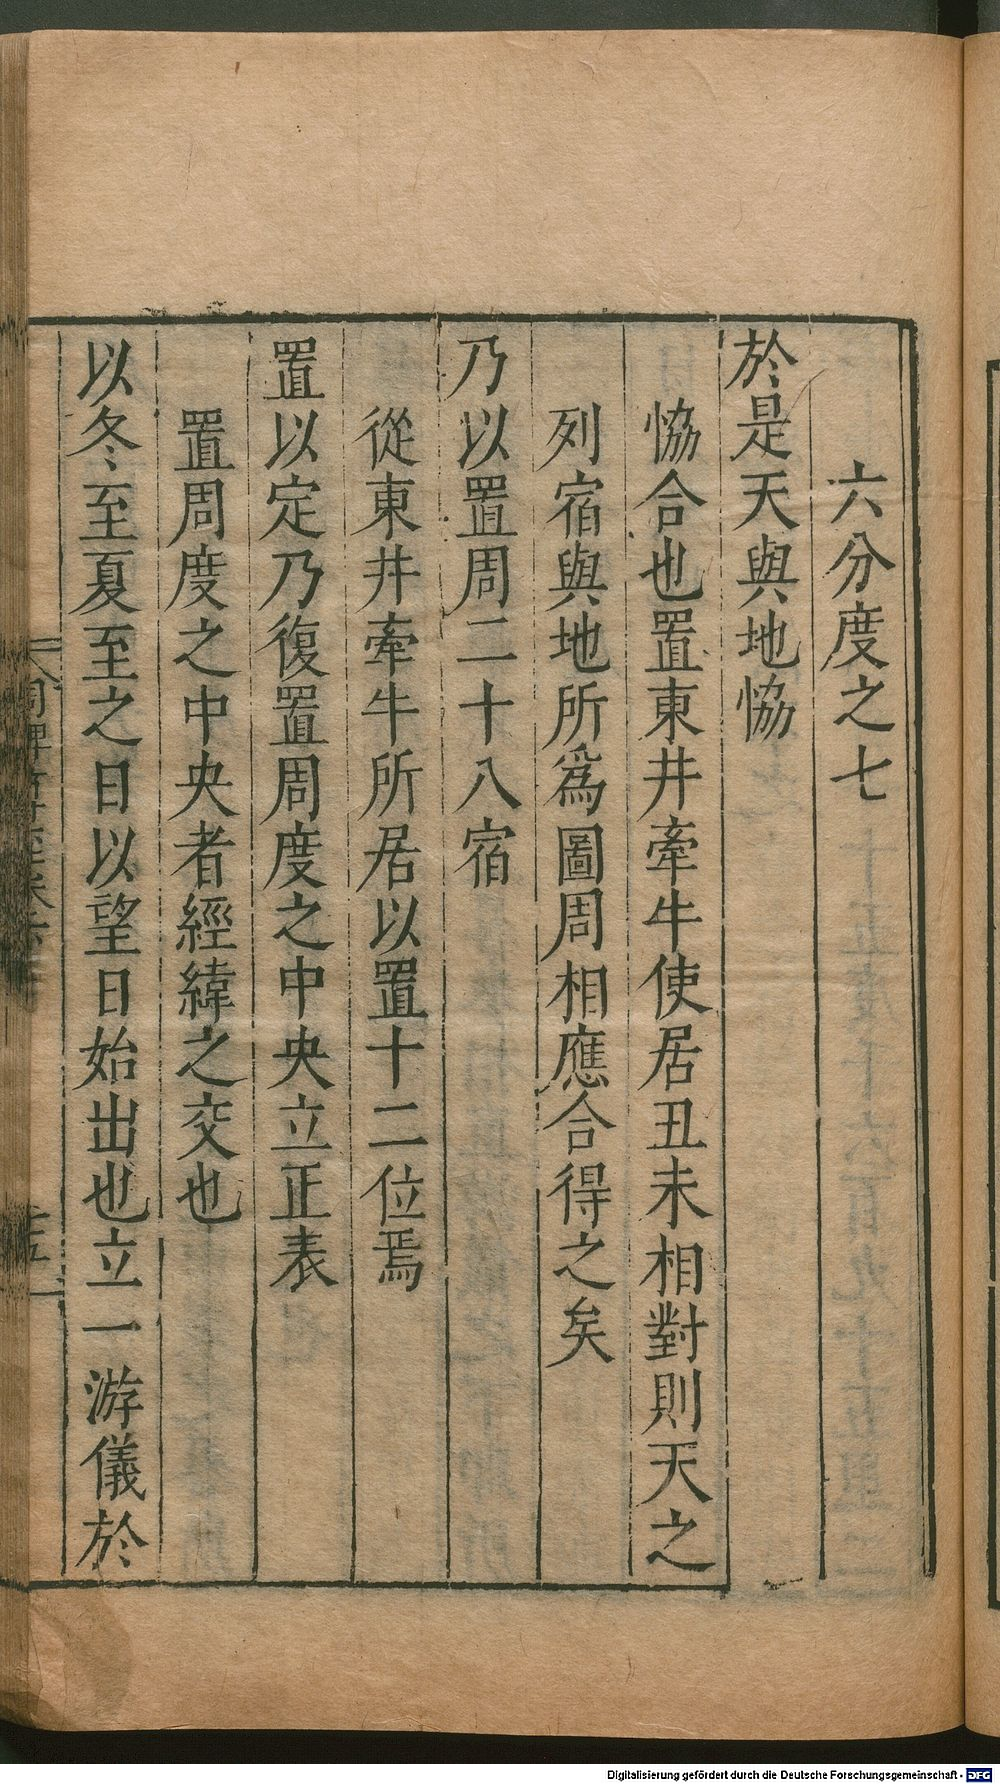 六分度之七
於是天與地恊
恊合也置東井牽牛使居丑未相對則天之
列宿與地所爲圖周相應合得之矣
乃以置周二十八宿
從東井牽牛所居以置十二位焉
置以定乃復置周度之中央立正表
置周度之中央者經緯之交也
以冬至夏至之日以望日始出也立一游儀於
Digitalisierung gefördert durch die Deutsche Forschungsgemeinschaft - DFG